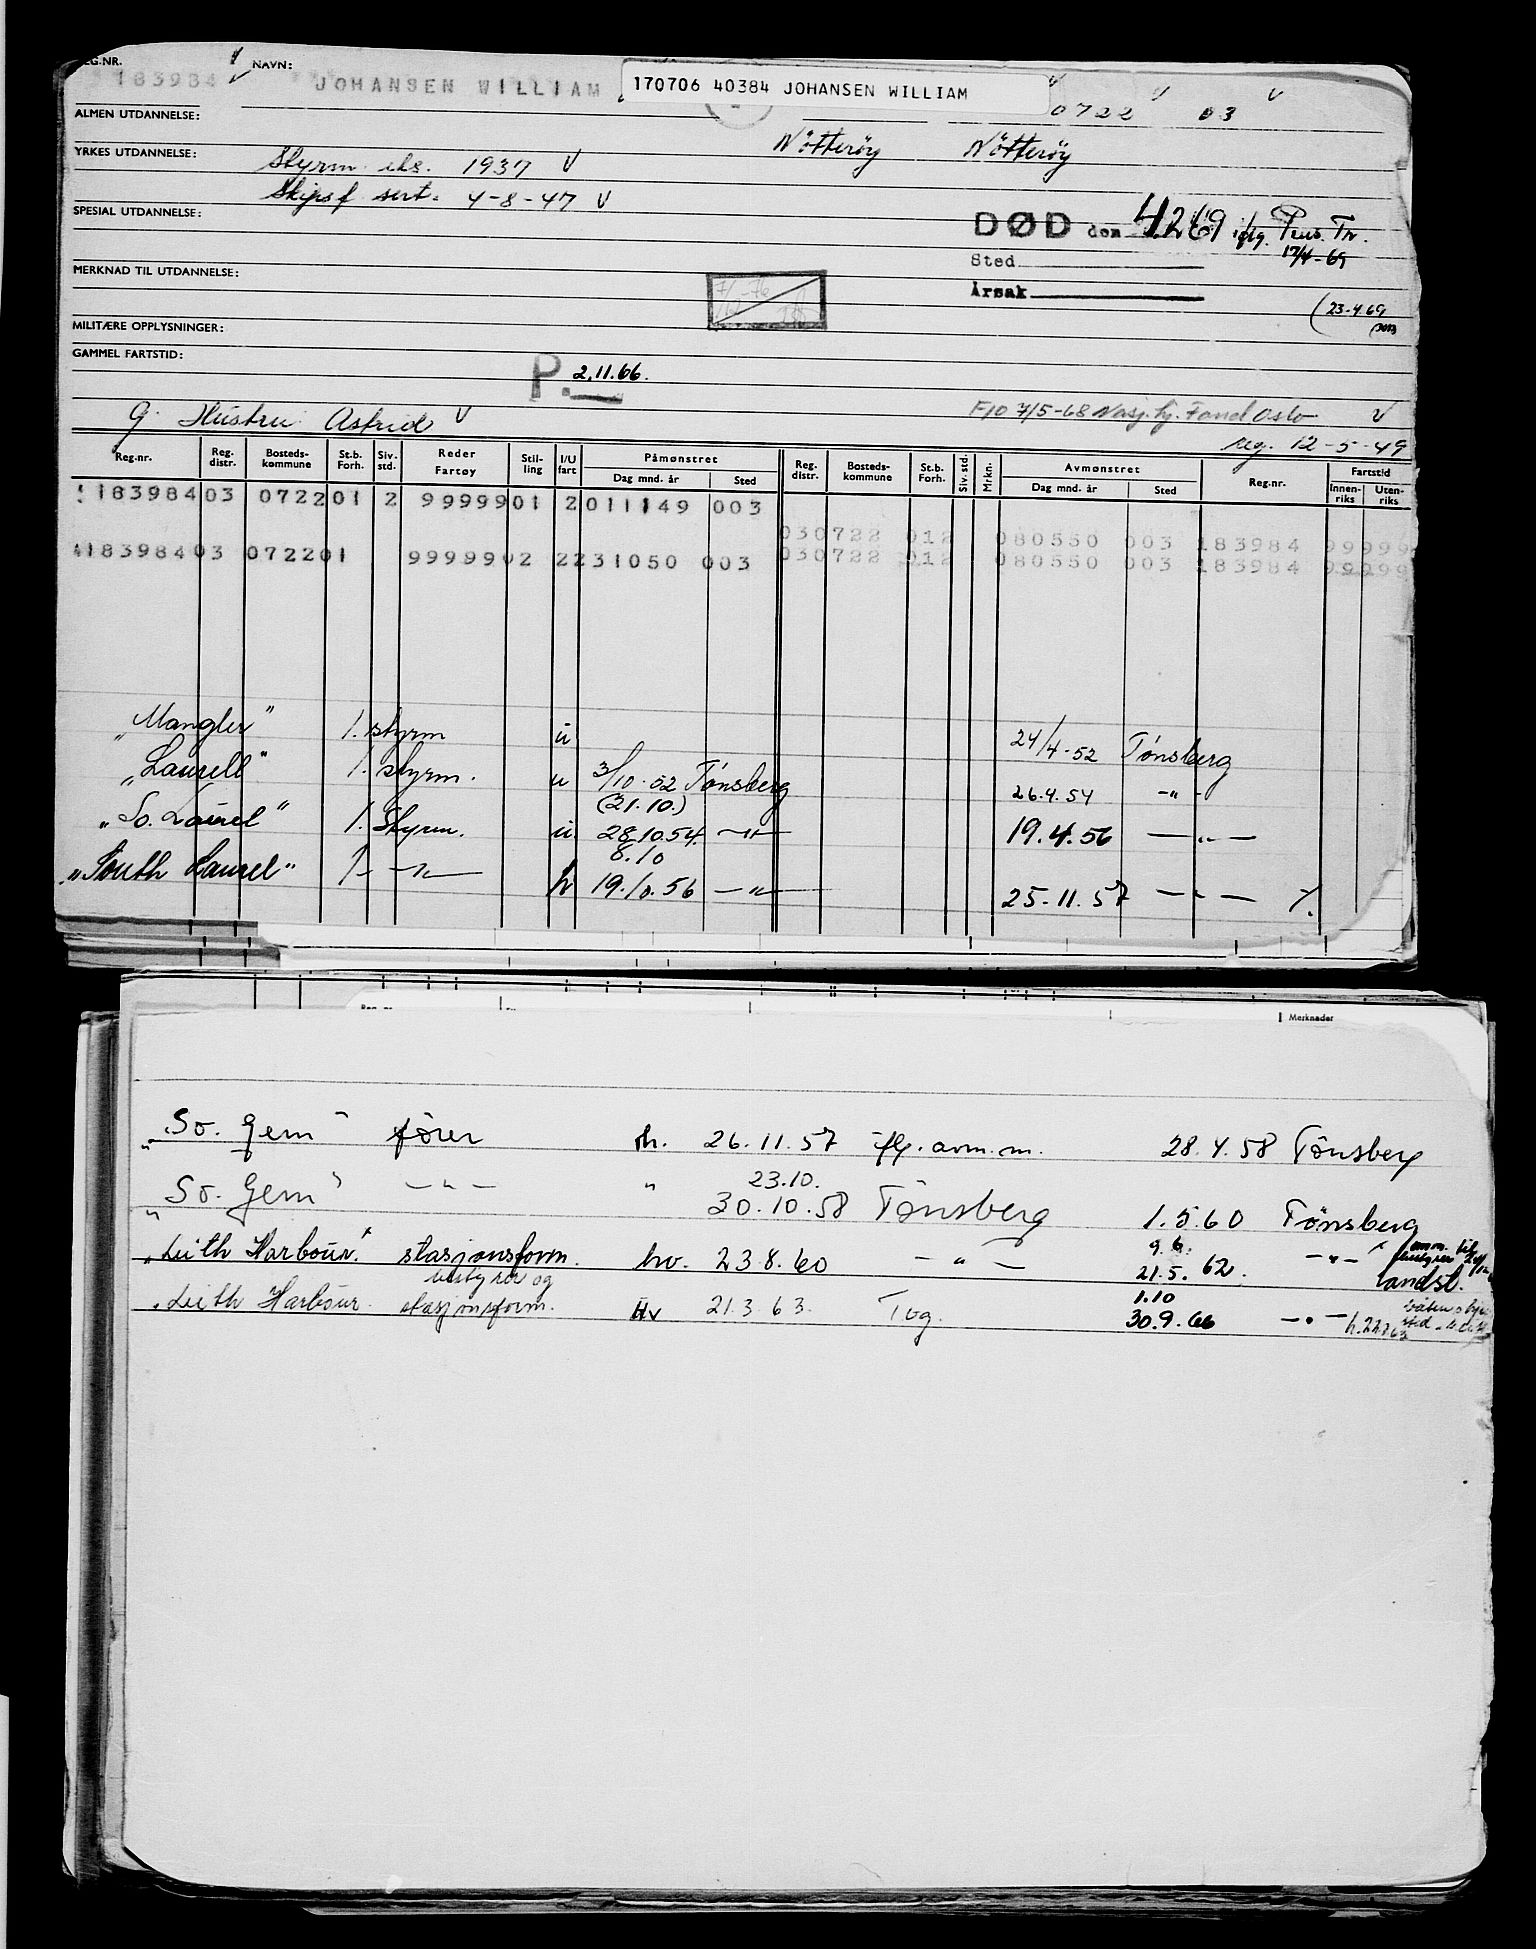 REG.NR. NAVN:
183984 JOHANSEN WILLIAM 170706 40384 JOHANSEN WILLIAM
0722 03
ALMEN UTDANNELSE:
Nötteröy Nötteröy
YRKES UTDANNELSE: Styrm. eks. 1937 V
Skipsf. sert. 4-8-47 V
SPESIAL UTDANNELSE:
DØD den 4.2.69 iflg. Pens. Tr.
17/4-69
Sted
MERKNAD TIL UTDANNELSE:
Årsak
(23.4.69
MILITÆRE OPPLYSNINGER:
GAMMEL FARTSTID:
P. 2.11.66.
g. Hustru Astrid V
F10 7/5-68 Nasj. hj. Fond Oslo V
reg. 12-5-49
Reg.nr. Reg. distr. Bosteds-kommune St.b. Forh. Siv. std. Reder Fartøy Stil-ling I/U fart Påmønstret Dag mnd. år Sted Reg. distr. Bosteds-kommune St.b. Forh. Siv. std. Mrkn. Avmønstret Dag mnd. år Sted Reg.nr. Fartstid Innen-riks Uten-riks
183984 03 0722 01 2 9999901 2 011149 003
030722 012 080550 003 183984 99999
4183984 03 0722 01 9999902 2 231050 003
030722 012 080550 003 183984 99999
"Mangler" 1. styrm u 24/4-52 Tönsberg
"Laurell" 1. styrm. u 3/10-52 Tönsberg 26.4.54 -"-
(21.10.)
"So. Laurel" 1. Styrm. u 28.10.54. -"- 19.4.56 -"-
8.10
"South Laurel" 1- -"- h 19.10.56 -"- 25-11.57 -"- %.
Merknader
"So. Gem" fører h. 26.11.57 iflg. avm.m. 28.4.58 Tönsberg
23.10.
"So. Gem" -"- " 30.10.58 Tönsberg 1.5.60 Tönsberg
9.6.
"Leith Harbour" stasjonsform. hv. 23.8.60 -"- 21.5.62. -"-
bestyrer og landst.
1.10
"Leith Harbour" stasjonsform. Hv 21.3.63. Tbg. 30.9.66 -"-